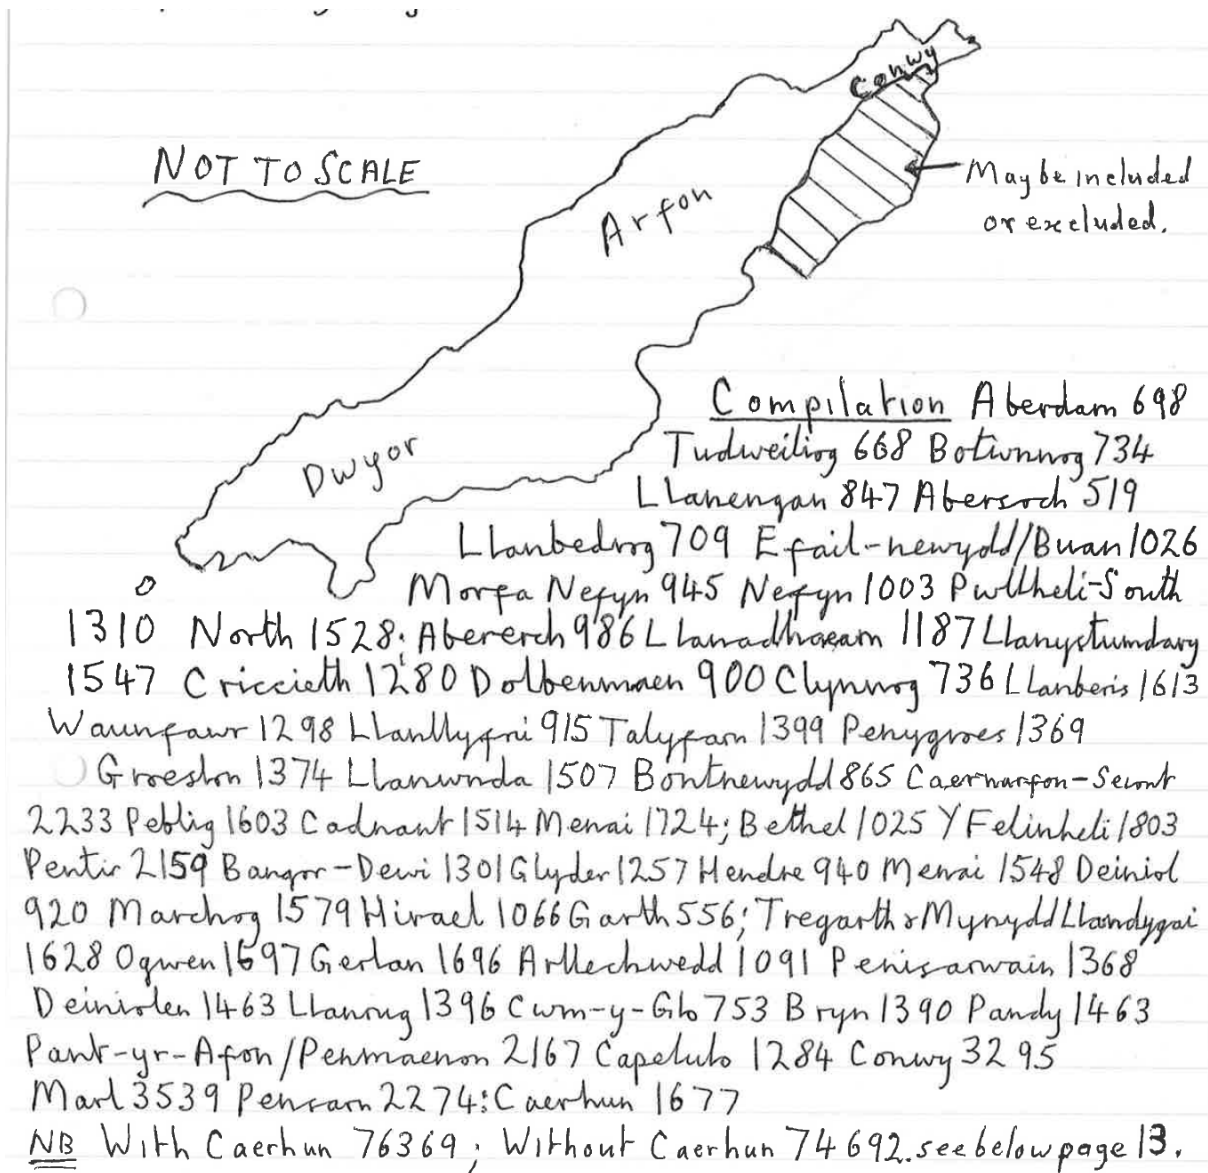 Conwy
NOT TO SCALE
Arfon
May be included
or excluded.
Dwyor
Compilation Aberdarn 698
Tudweiliog 668 Botwnnog 734
Llanengan 847 Abersoch 519
Llanbedrog 709 Efail-newydd/Buan 1026
Morfa Nefyn 945 Nefyn 1003 Pwllheli-South
1310 North 1528; Abererch 986 Llanadhaearn 1187 Llanystumdawy
1547 Criccieth 1280 Dolbenmaen 900 Clynnog 736 Llanberis 1613
Waunfawr 1298 Llanllyfni 915 Talysarn 1399 Penygroes 1369
Groeslon 1374 Llanwnda 1507 Bontnewydd 865 Caernarfon-Seiont
2233 Peblig 1603 Cadnant 1514 Menai 1724; Bethel 1025 Y Felinheli 1803
Pentir 2159 Bangor-Dewi 1301 Glyder 1257 Hendre 940 Menai 1548 Deiniol
920 Marchog 1579 Hirael 1066 Garth 556; Tregarth & Mynydd Llandygai
1628 Ogwen 1697 Gerlan 1696 Arllechwedd 1091 Penisarwain 1368
Deiniolen 1463 Llanrug 1396 Cwm-y-Glo 753 Bryn 1390 Pandy 1463
Pant-yr-Afon/Penmaenon 2167 Capelulo 1284 Conwy 3295
Marl 3539 Pensarn 2274; Caerhun 1677
NB With Caerhun 76369; Without Caerhun 74692. see below page 13.